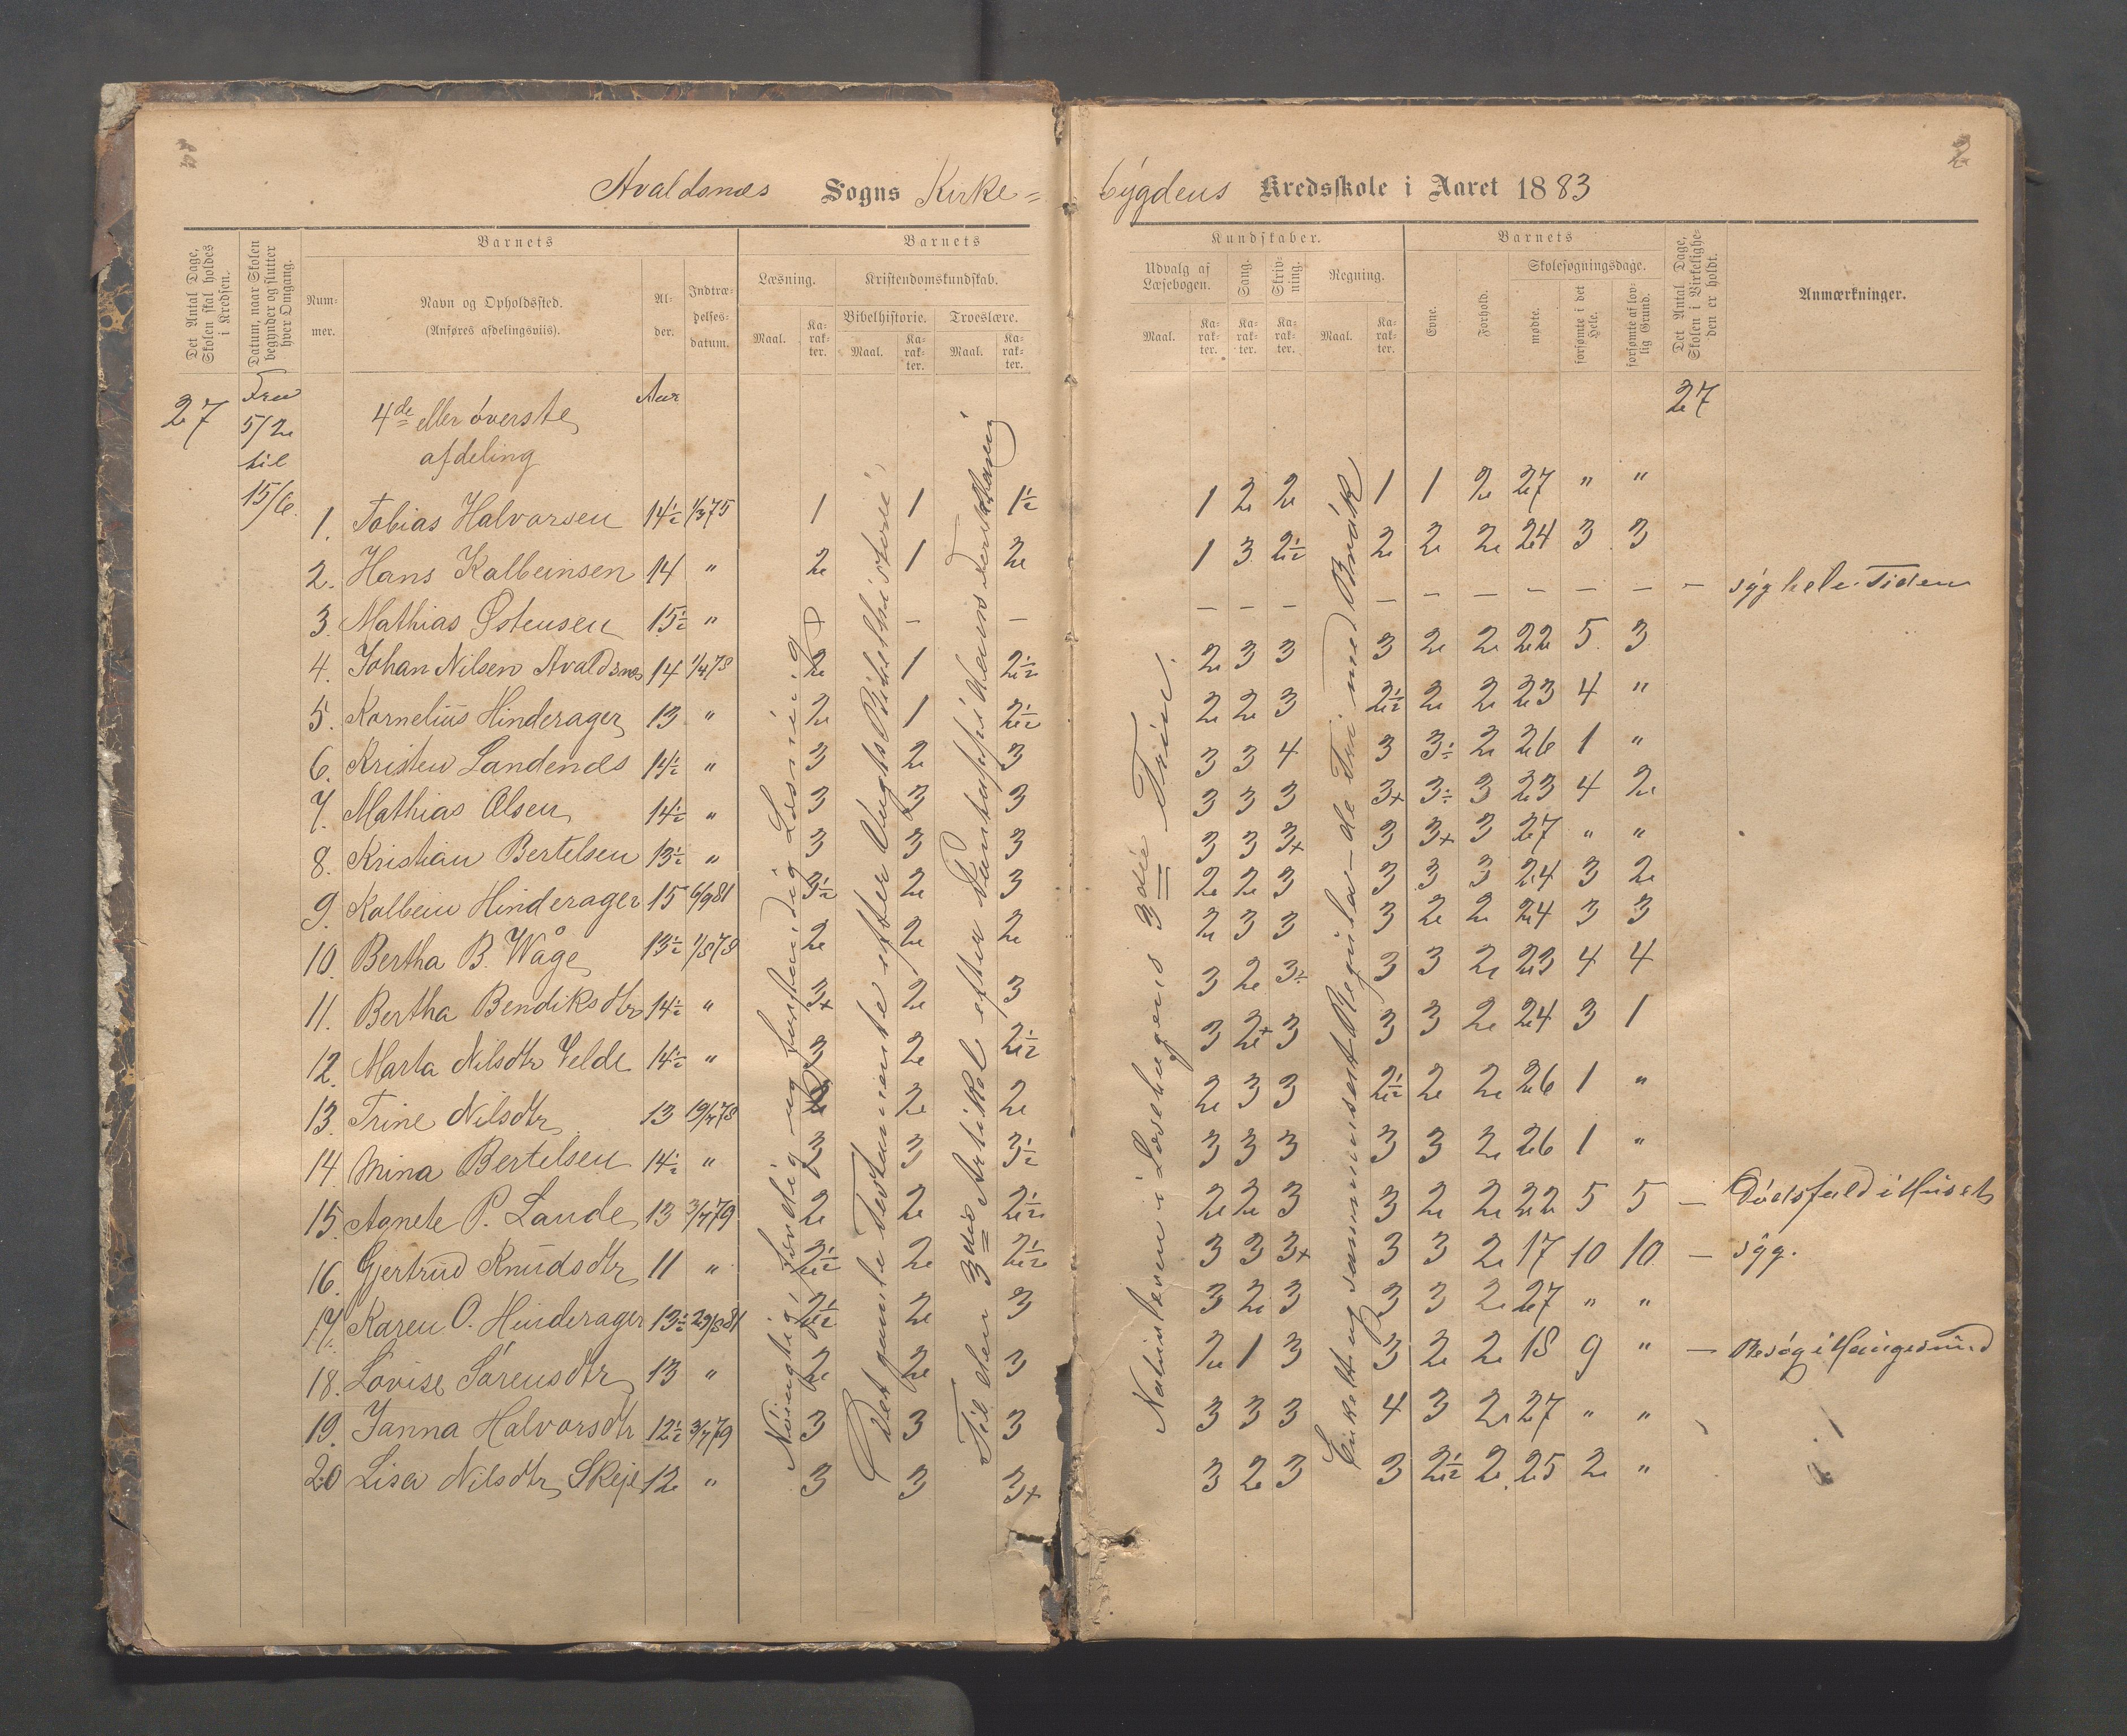 2
Avaldsnes Sogns Kirke=bygdens Kredsskole i Aaret 1883
Det Antal Dage, Skolen skal holdes i Kredsen.
Datum, naar Skolen begynder og slutter hver Omgang.
Barnets
Nummer.
Navn og Opholdssted. (Anføres afdelingsviis).
Alder.
Indtrædelsesdatum.
Barnets Kundskaber.
Læsning.
Maal. Karakter.
Kristendomskundskab.
Bibelhistorie.
Maal. Karakter.
Troeslære.
Maal. Karakter.
Udvalg af Læsebogen.
Maal. Karakter.
Sang.
Karakter.
Skrivning.
Karakter.
Regning.
Maal. Karakter.
Barnets
Evne.
Forhold.
Skolesøgningsdage.
mødte.
forsømte i det Hele.
forsømte af lovlig Grund.
Det Antal Dage, Skolen i Virkeligheden er holdt.
Anmærkninger.
27 Fra 5/2 til 15/6.
4de eller överste afdeling
Aar
27
1. Tobias Halvorsen 14½ 1/3 75 1 1 1½ 1 2 2 1 1 2 27 " "
2. Hans Kolbeinsen 14 " 2 1 2 1 3 2½ 2 2 2 24 3 3
3. Mathias Østensen 15½ " + – – – – – – – – – – – – syg hele Tiden
4. Johan Nilsen Avaldsnes 14 1/4 78 2 1 2½ 2 3 3 3 2 2 22 5 3
5. Kornelius Hinderager 13 " 2 1 2½ 2 2 3 2½ 2 2 23 4 "
6. Kristen Landenes 14½ " 3 2 3 3 3 4 3 3÷ 2 26 1 "
7. Mathias Olsen 14½ " 3 3 3 3 3 3 3+ 3÷ 3 23 4 2
8. Kristian Bertelsen 13½ " 3 3 3 3 3 3+ 3 3+ 3 27 " "
9. Kolbein Hinderager 15 6/9 81 3½ 2 3 2 2 3 3 3 3 24 3 2
10. Bertha B. Wåge 13½ 1/8 78 2 2 2 2 3 3 3 2 2 24 3 3
11. Bertha Bendiksdtr 14½ " 3+ 2 3 3 2 3÷ 3 3 2 23 4 4
12. Marta Nilsdtr Velde 14½ " 3 2 2½ 3 2+ 3 3 3 2 24 3 1
13. Trine Nilsdtr 13 19/7 78 2 2 2 2 3 3 2½ 2 2 26 1 "
14. Mina Bertelsen 14½ " 3 3 3½ 3 3 3 3 3 2 26 1 "
15. Agnete P. Lande 13 3/7 79 2 2 2½ 2 2 3 3 2 2 22 5 5 – Dödsfald i Huset
16. Gjertrud Knudsdtr 11 " 2½ 2 2½ 3 3 3+ 3 3 2 17 10 10 – syg.
17. Karen O. Hinderager 13½ 29/8 81 2½ 2 3 3 2 3 3 3 2 27 " "
18. Lovise Sörensdtr 13 " 2 2 3 2 1 3 3 2 2 18 9 " – Besög i Haugesund
19. Janna Halvorsdtr 12½ 3/7 79 3 3 3 3 3 3 4 3 2 27 " "
20 Lisa Nilsdtr Skeje 12 " 3 3 3+ 3 2 3 3 2½ 2 25 2 "
Nöiagtig, færdig og forstandig Læsning
Det gamle Testamente efter Vogts Bibelhistorie
Til den 3die Artikel efter Pontoppidans Forklaring
Naturlæren i Læsebogens 3die Trin.
Enkelt og sammensat Reguladetri med Brök